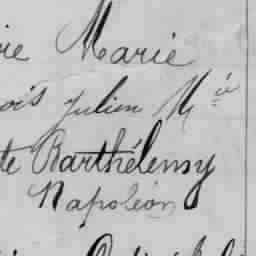 ire Marie
ois Julien M^a
te Barthélemy
Napoléon